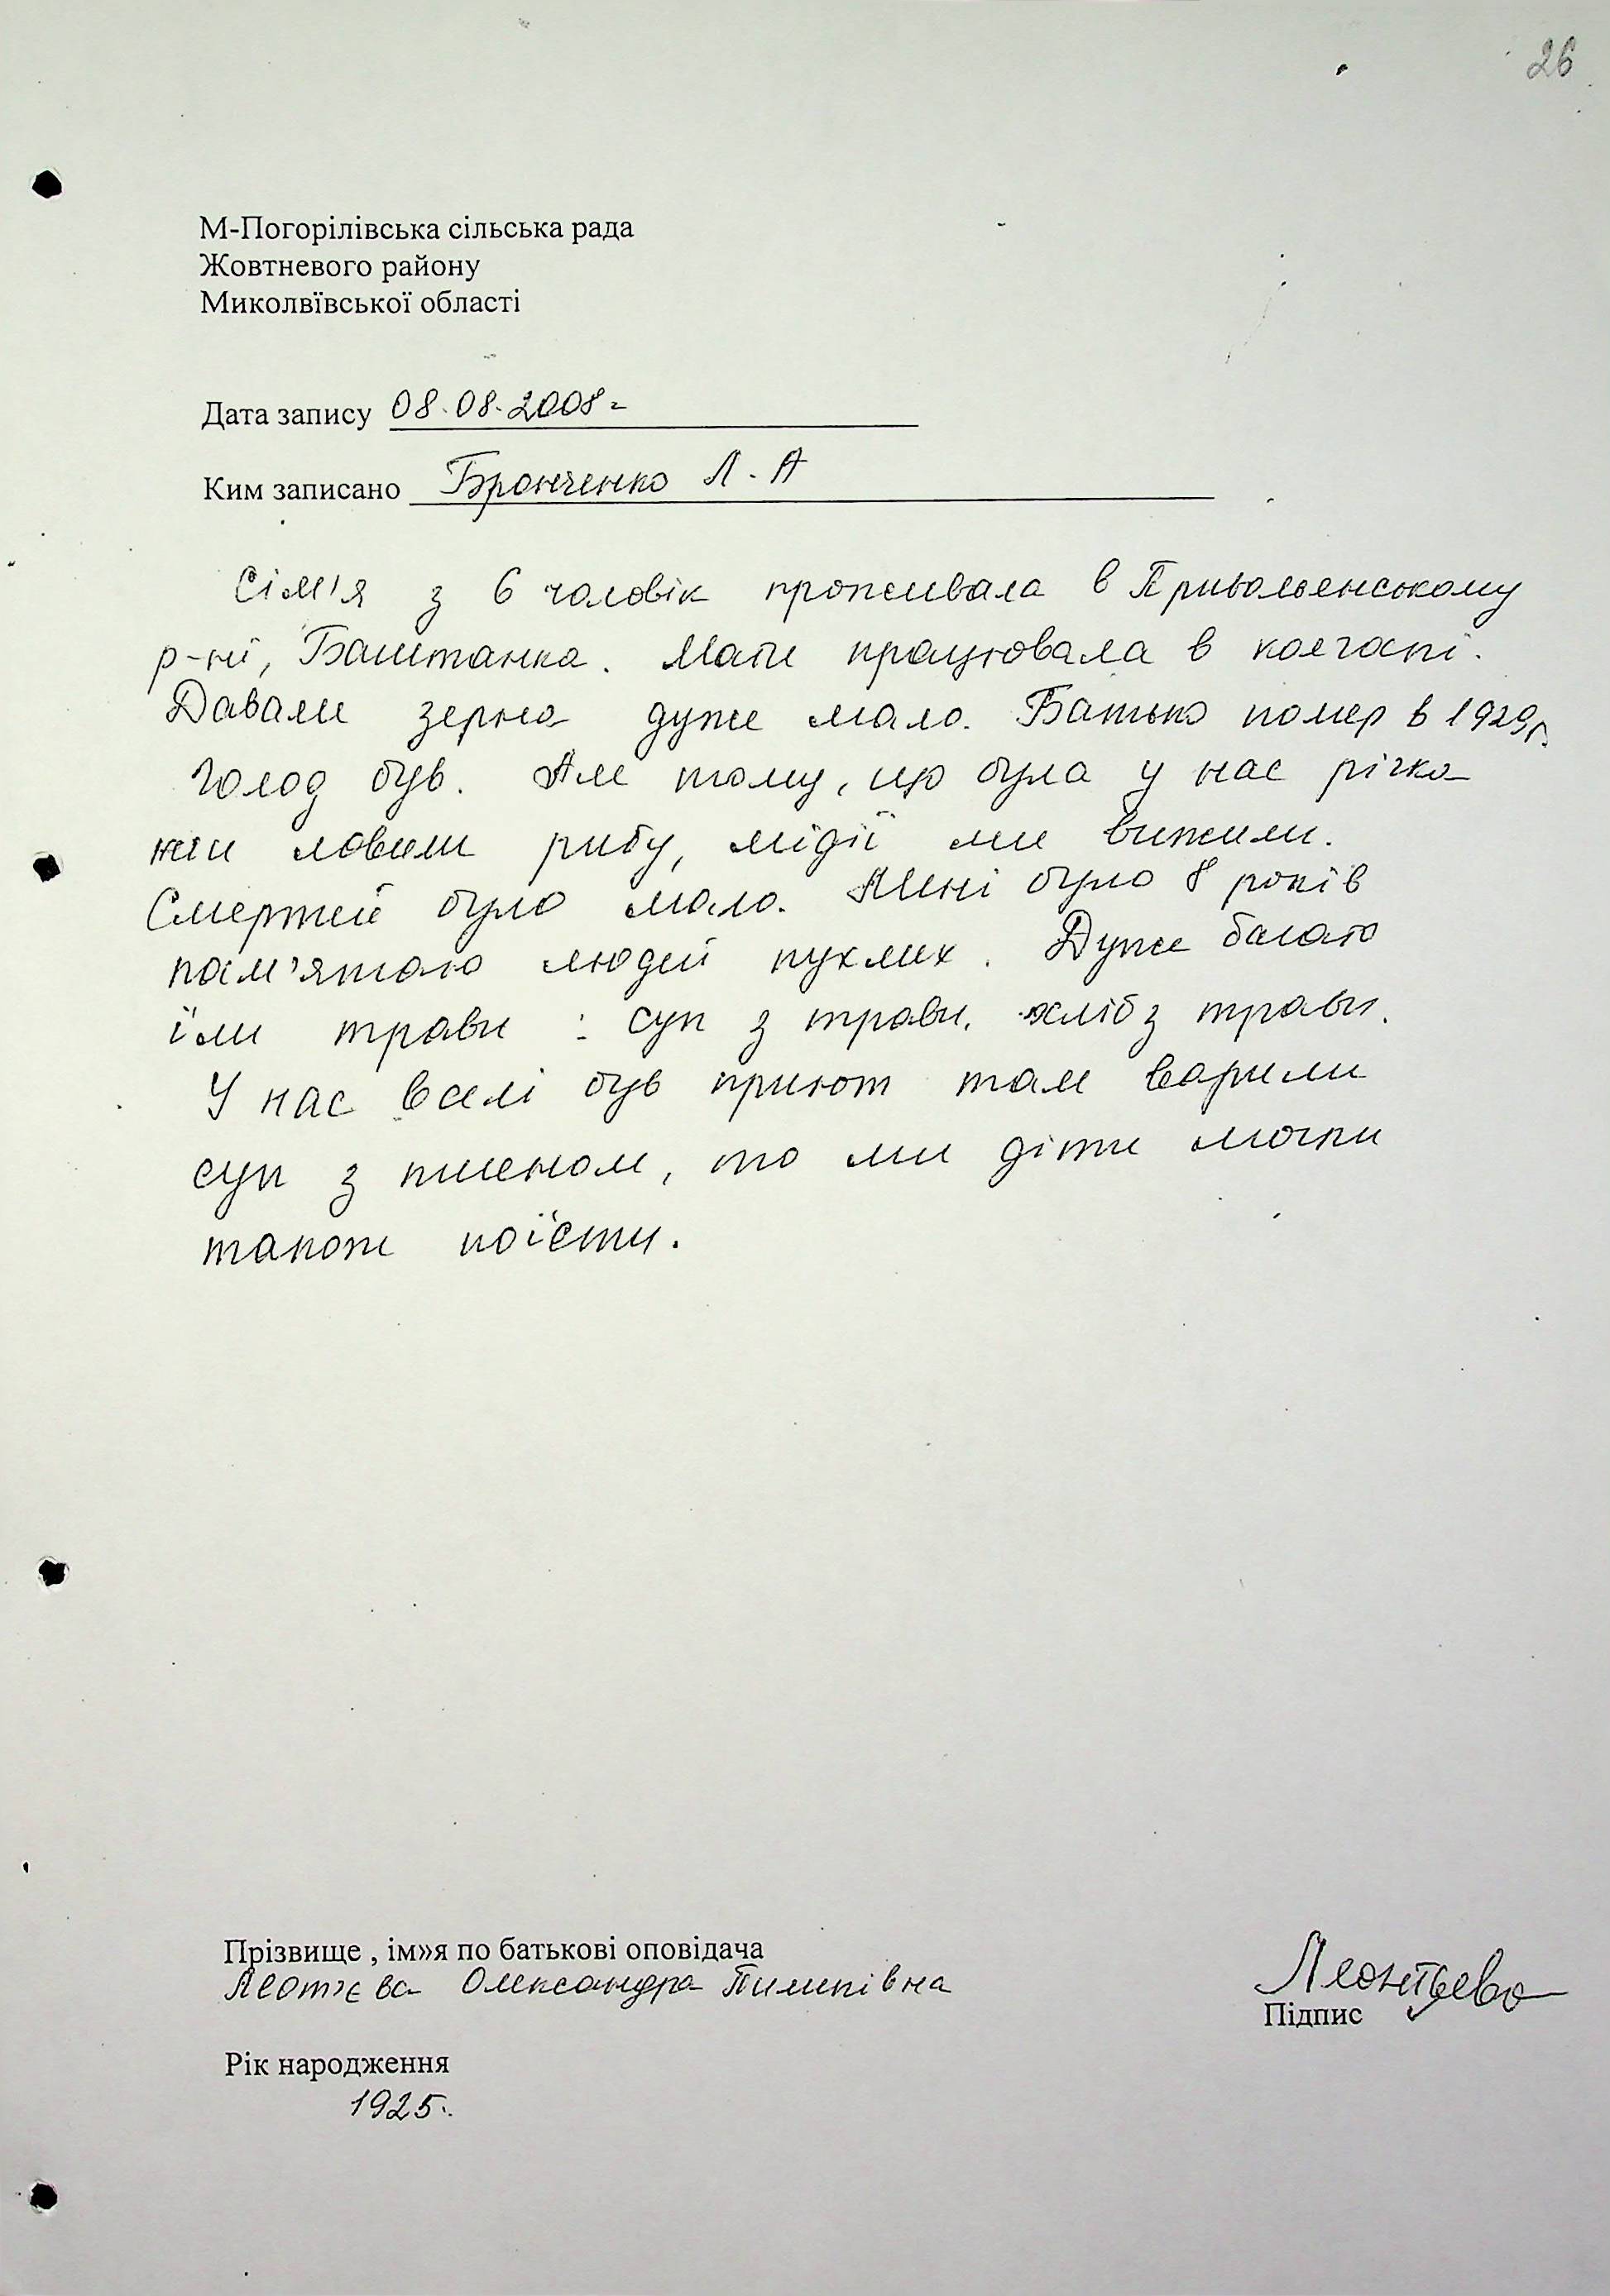 26
М-Погорілівська сільська рада
Жовтневого району
Миколвївської області
Дата запису 08.08.2008г
Ким записано Бронченко Л. А
Сім'я з 6 чоловік проживала в Привольенському
р-ні, Баштанка. Мати працювала в колгоспі.
Давали зерна дуже мало. Батько помер в 1929р.
Голод був. Але тому, що була у нас річка
ми ловили рибу, мідії ми вижили.
Смертей було мало. Мені було 8 років
пам'ятаю людей пухлих. Дуже багато
їли трави : суп з трави, хліб з травы.
У нас в селі був приют там варили
суп з пшеном, то ми діти могли
також поїсти.
Прізвище , ім»я по батькові оповідача
Леот'єва Олександра Пилипівна
Леонтьева
Підпис
Рік народження
1925.